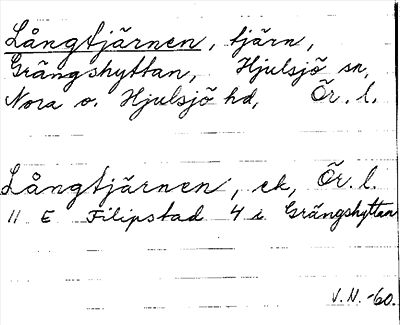 Långtjärnen, tjärn,
Grängshyttan, Hjulsjö sn,
Nora o. Hjulsjö hd, Ör. l.
Långtjärnen, ek, Ör. l.
11 E Filipstad 4 i Grängshyttan
J. N. -60.